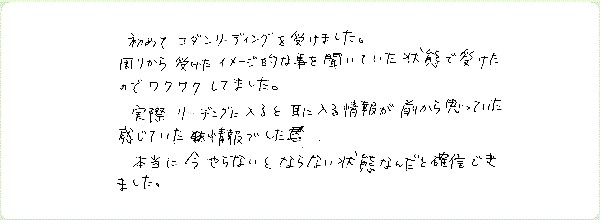 初めてコダンリーディングを受けました。
周りから受けたイメージ的な事を聞いていた状態で受けた
のでワクワクしてました。
実際リーデングに入ると耳に入る情報が前から思っていた
感じていた情報でした
本当に今やらないとならない状態なんだと確信でき
ました。